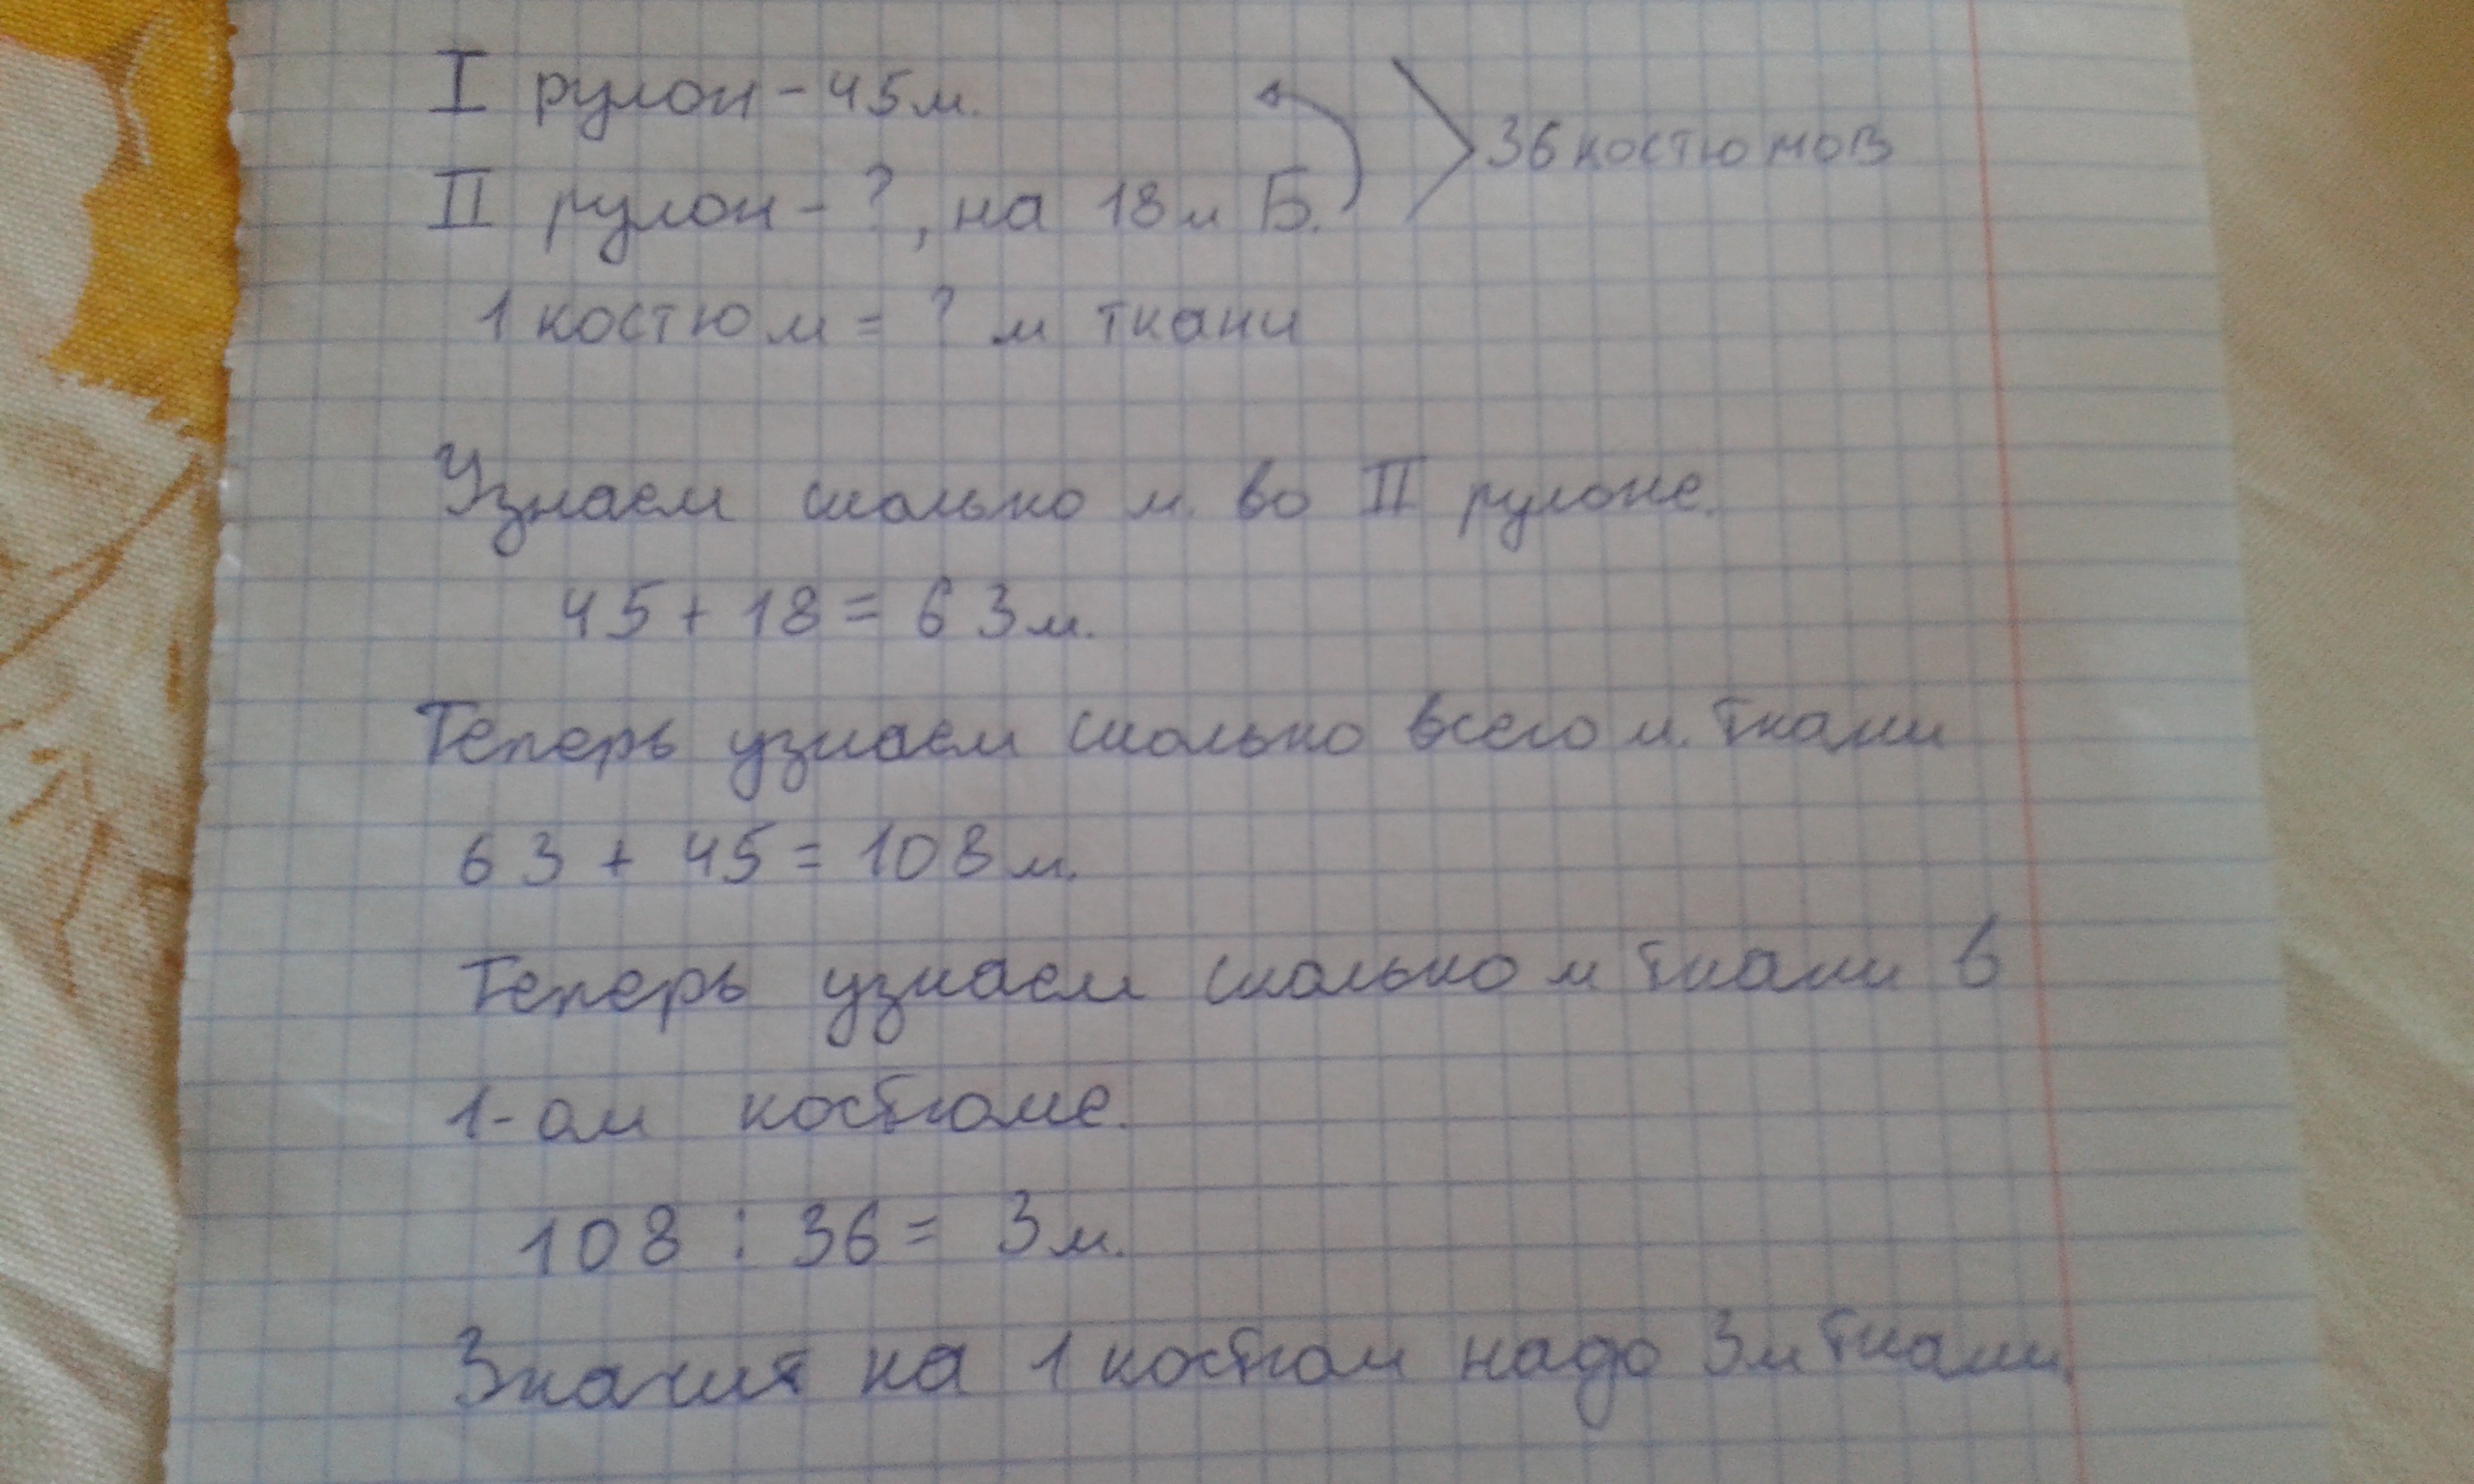 I рулон - 45 м.
II рулон - ?, на 18 м Б.
36 костюмов
1 костюм = ? м ткани
Узнаем сколько м. во II рулоне.
45 + 18 = 63 м.
Теперь узнаем сколько всего м. ткани
63 + 45 = 108 м.
Теперь узнаем сколько м ткани в
1-ом костюме.
108 : 36 = 3 м.
Значит на 1 костюм надо 3 м ткани.